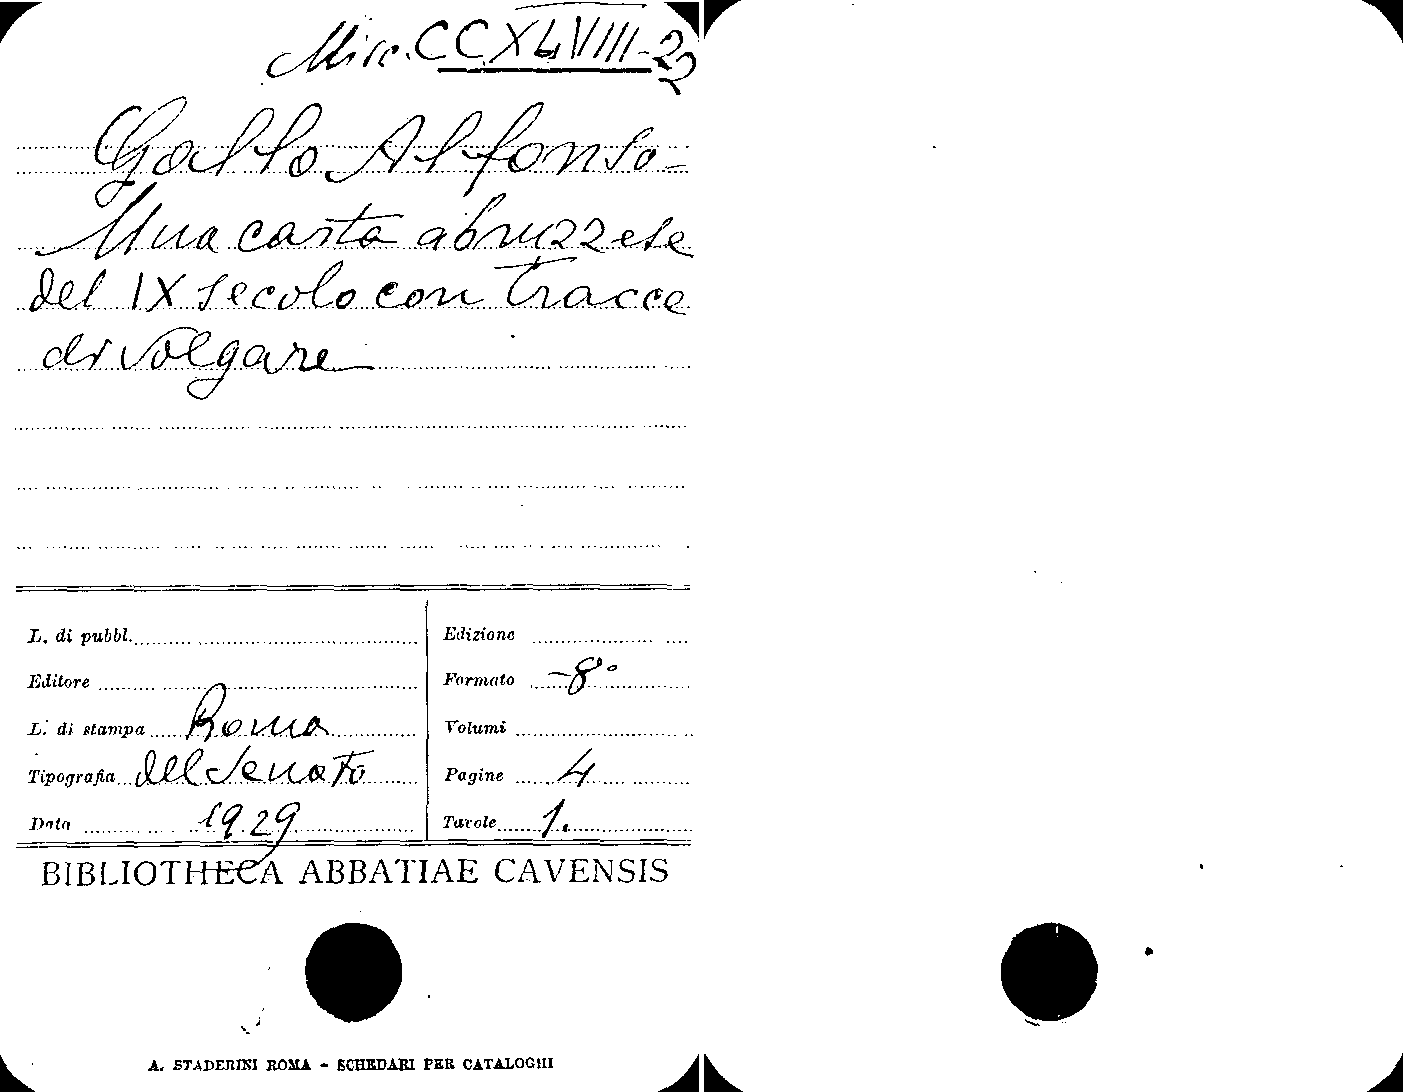 Misc. CCXLVIII-22
Gallo Alfonso-
Una carta abruzzese
del IX secolo con tracce
di volgare
L. di pubbl.
Editore
L. di stampa Roma
Tipografia del Senato
Data 1929
Edizione
Formato -8°
Volumi
Pagine 4
Tavole 1.
BIBLIOTHECA ABBATIAE CAVENSIS
A. STADERINI ROMA - SCHEDARI PER CATALOGHI